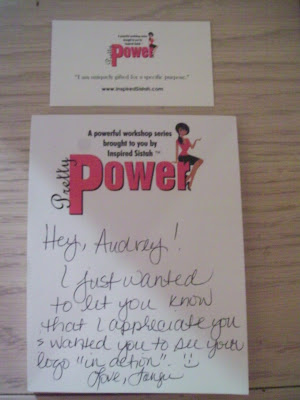 Pretty
Power
"I am uniquely gifted for a specific purpose."
www.InspiredSistah.com
A powerful workshop series
brought to you by
Inspired Sistah™
Pretty
Power
Hey, Audrey!
I just wanted
to let you know
that I appreciate you
& wanted you to see your
logo "in action". :)
Love, Tanya